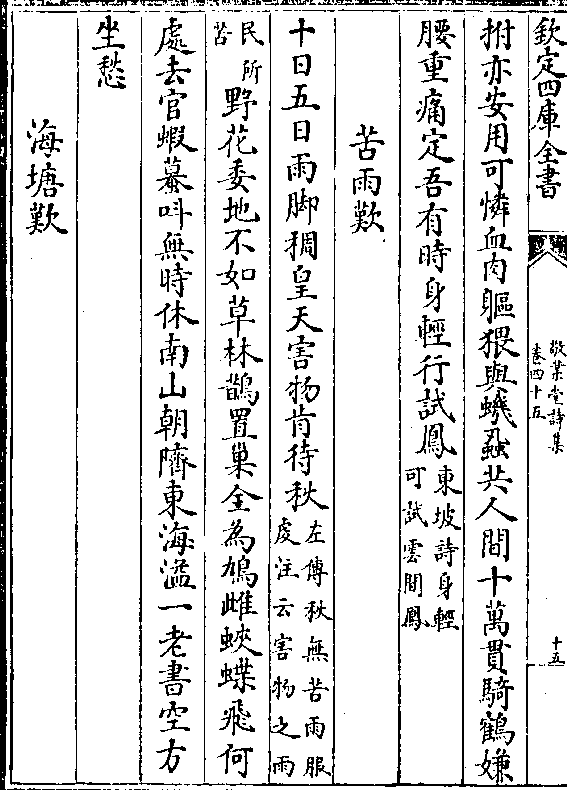 欽定四庫全書
敬業堂詩集
卷四十五
十五
拊亦安用可憐血肉軀猥與蟣蝨共人間十萬貫騎鶴嫌
腰重痛定吾有時身輕行試鳳東坡詩身輕
可試雲間鳳
苦雨歎
十日五日雨脚稠皇天害物肯待秋左傳秋無苦雨服
虔注云害物之雨
民所
苦
野花委地不如草林鵲置巢全為鳩雌蛺蝶飛何
處去官蝦蟇叫無時休南山朝隮東海溢一老書空方
坐愁
海塘歎